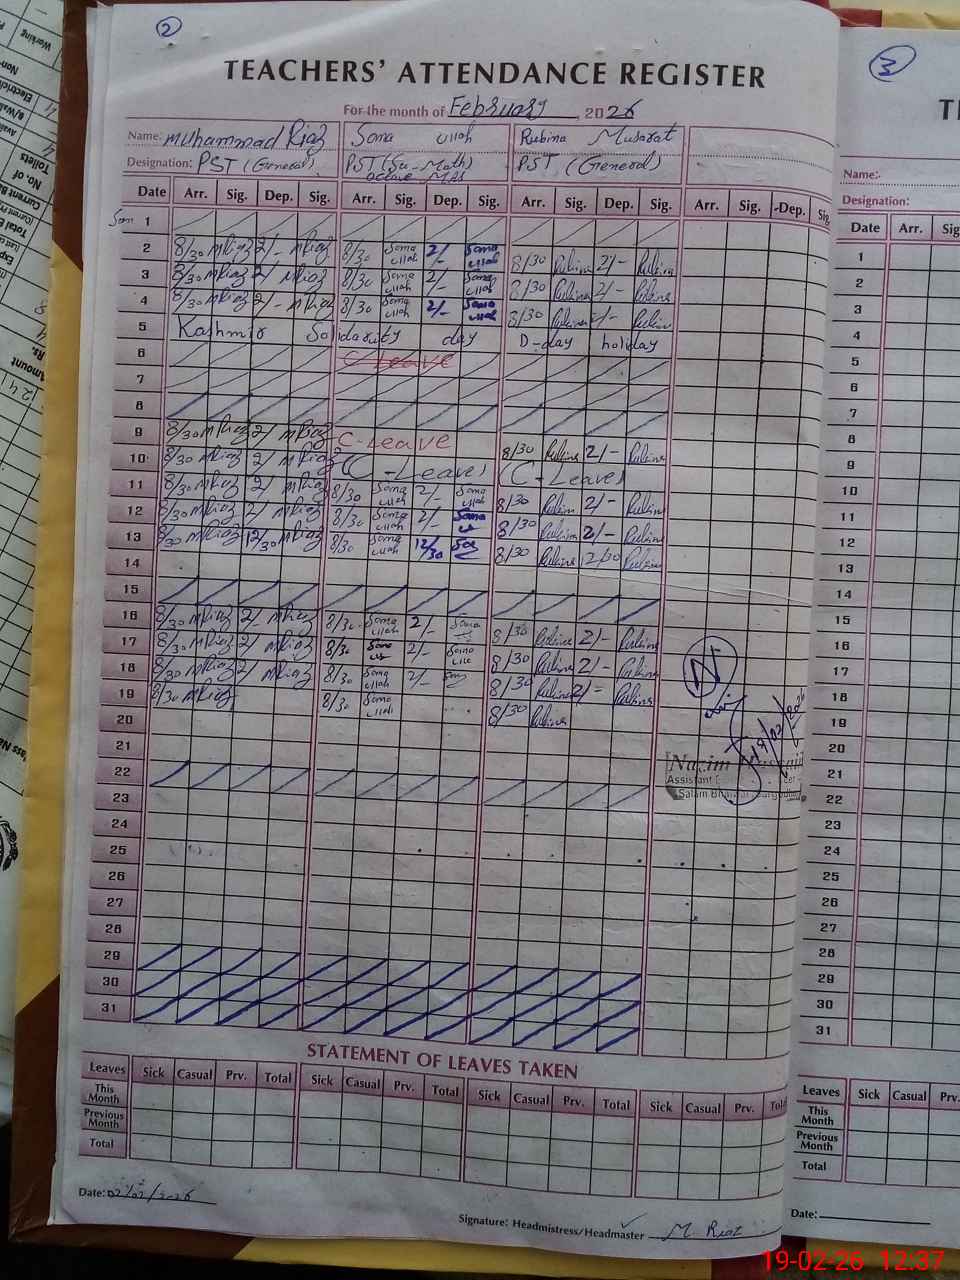 2
TEACHERS' ATTENDANCE REGISTER
For the month of February 2026
Name: Muhammad Riaz Soma ullah Rubina Musarat
Designation: PST (General) PST (Sc-Math) PST (General)
Date Arr. Sig. Dep. Sig. Arr. Sig. Dep. Sig. Arr. Sig. Dep. Sig. Arr. Sig. Dep. Sig.
1
2 8/30 MRiaz 2/- MRiaz 8/30 Soma ullah 2/- Soma ullah 8/30 Rubina 2/- Rubina
3 8/30 MRiaz 2/- MRiaz 8/30 Soma ullah 2/- Soma ullah 8/30 Rubina 2/- Rubina
4 8/30 MRiaz 2/- MRiaz 8/30 Soma ullah 2/- Soma ullah 8/30 Rubina 2/- Rubina
5 Kashmir Solidarity day D-day holiday
6 C-Leave
7
8
9 8/30 MRiaz 2/ MRiaz C-Leave 8/30 Rubina 2/- Rubina
10 8/30 MRiaz 2/ MRiaz C-Leave C-Leave
11 8/30 MRiaz 2/ MRiaz 8/30 Soma ullah 2/- Soma ullah 8/30 Rubina 2/- Rubina
12 8/30 MRiaz 2/ MRiaz 8/30 Soma ullah 2/- Soma 8/30 Rubina 2/- Rubina
13 8/30 MRiaz 12/30 MRiaz 8/30 Soma ullah 12/30 8/30 Rubina 12/30 Rubina
14
15
16 8/30 MRiaz 2/- MRiaz 8/30 Soma ullah 2/- Soma 8/30 Rubina 2/- Rubina
17 8/30 MRiaz 2/ MRiaz 8/30 Soma 2/- Soma 8/30 Rubina 2/- Rubina
18 8/30 MRiaz 2/ MRiaz 8/30 Soma ullah 2/- 8/30 Rubina 2/- Rubina
19 8/30 MRiaz 8/30 Soma ullah 8/30 Rubina
20
21
22
23
24
25
26
27
28
29
30
31
N
Nazim
Assistant
Salam
STATEMENT OF LEAVES TAKEN
Leaves Sick Casual Prv. Total Sick Casual Prv. Total Sick Casual Prv. Total Sick Casual Prv.
This Month
Previous Month
Total
Date: 02/02/2026
Signature: Headmistress/Headmaster M Riaz
3
Name:
Designation:
Date Arr.
1
2
3
4
5
6
7
8
9
10
11
12
13
14
15
16
17
18
19
20
21
22
23
24
25
26
27
28
29
30
31
Leaves Sick Casual Prv.
This Month
Previous Month
Total
Date:
19-02-26 12:37